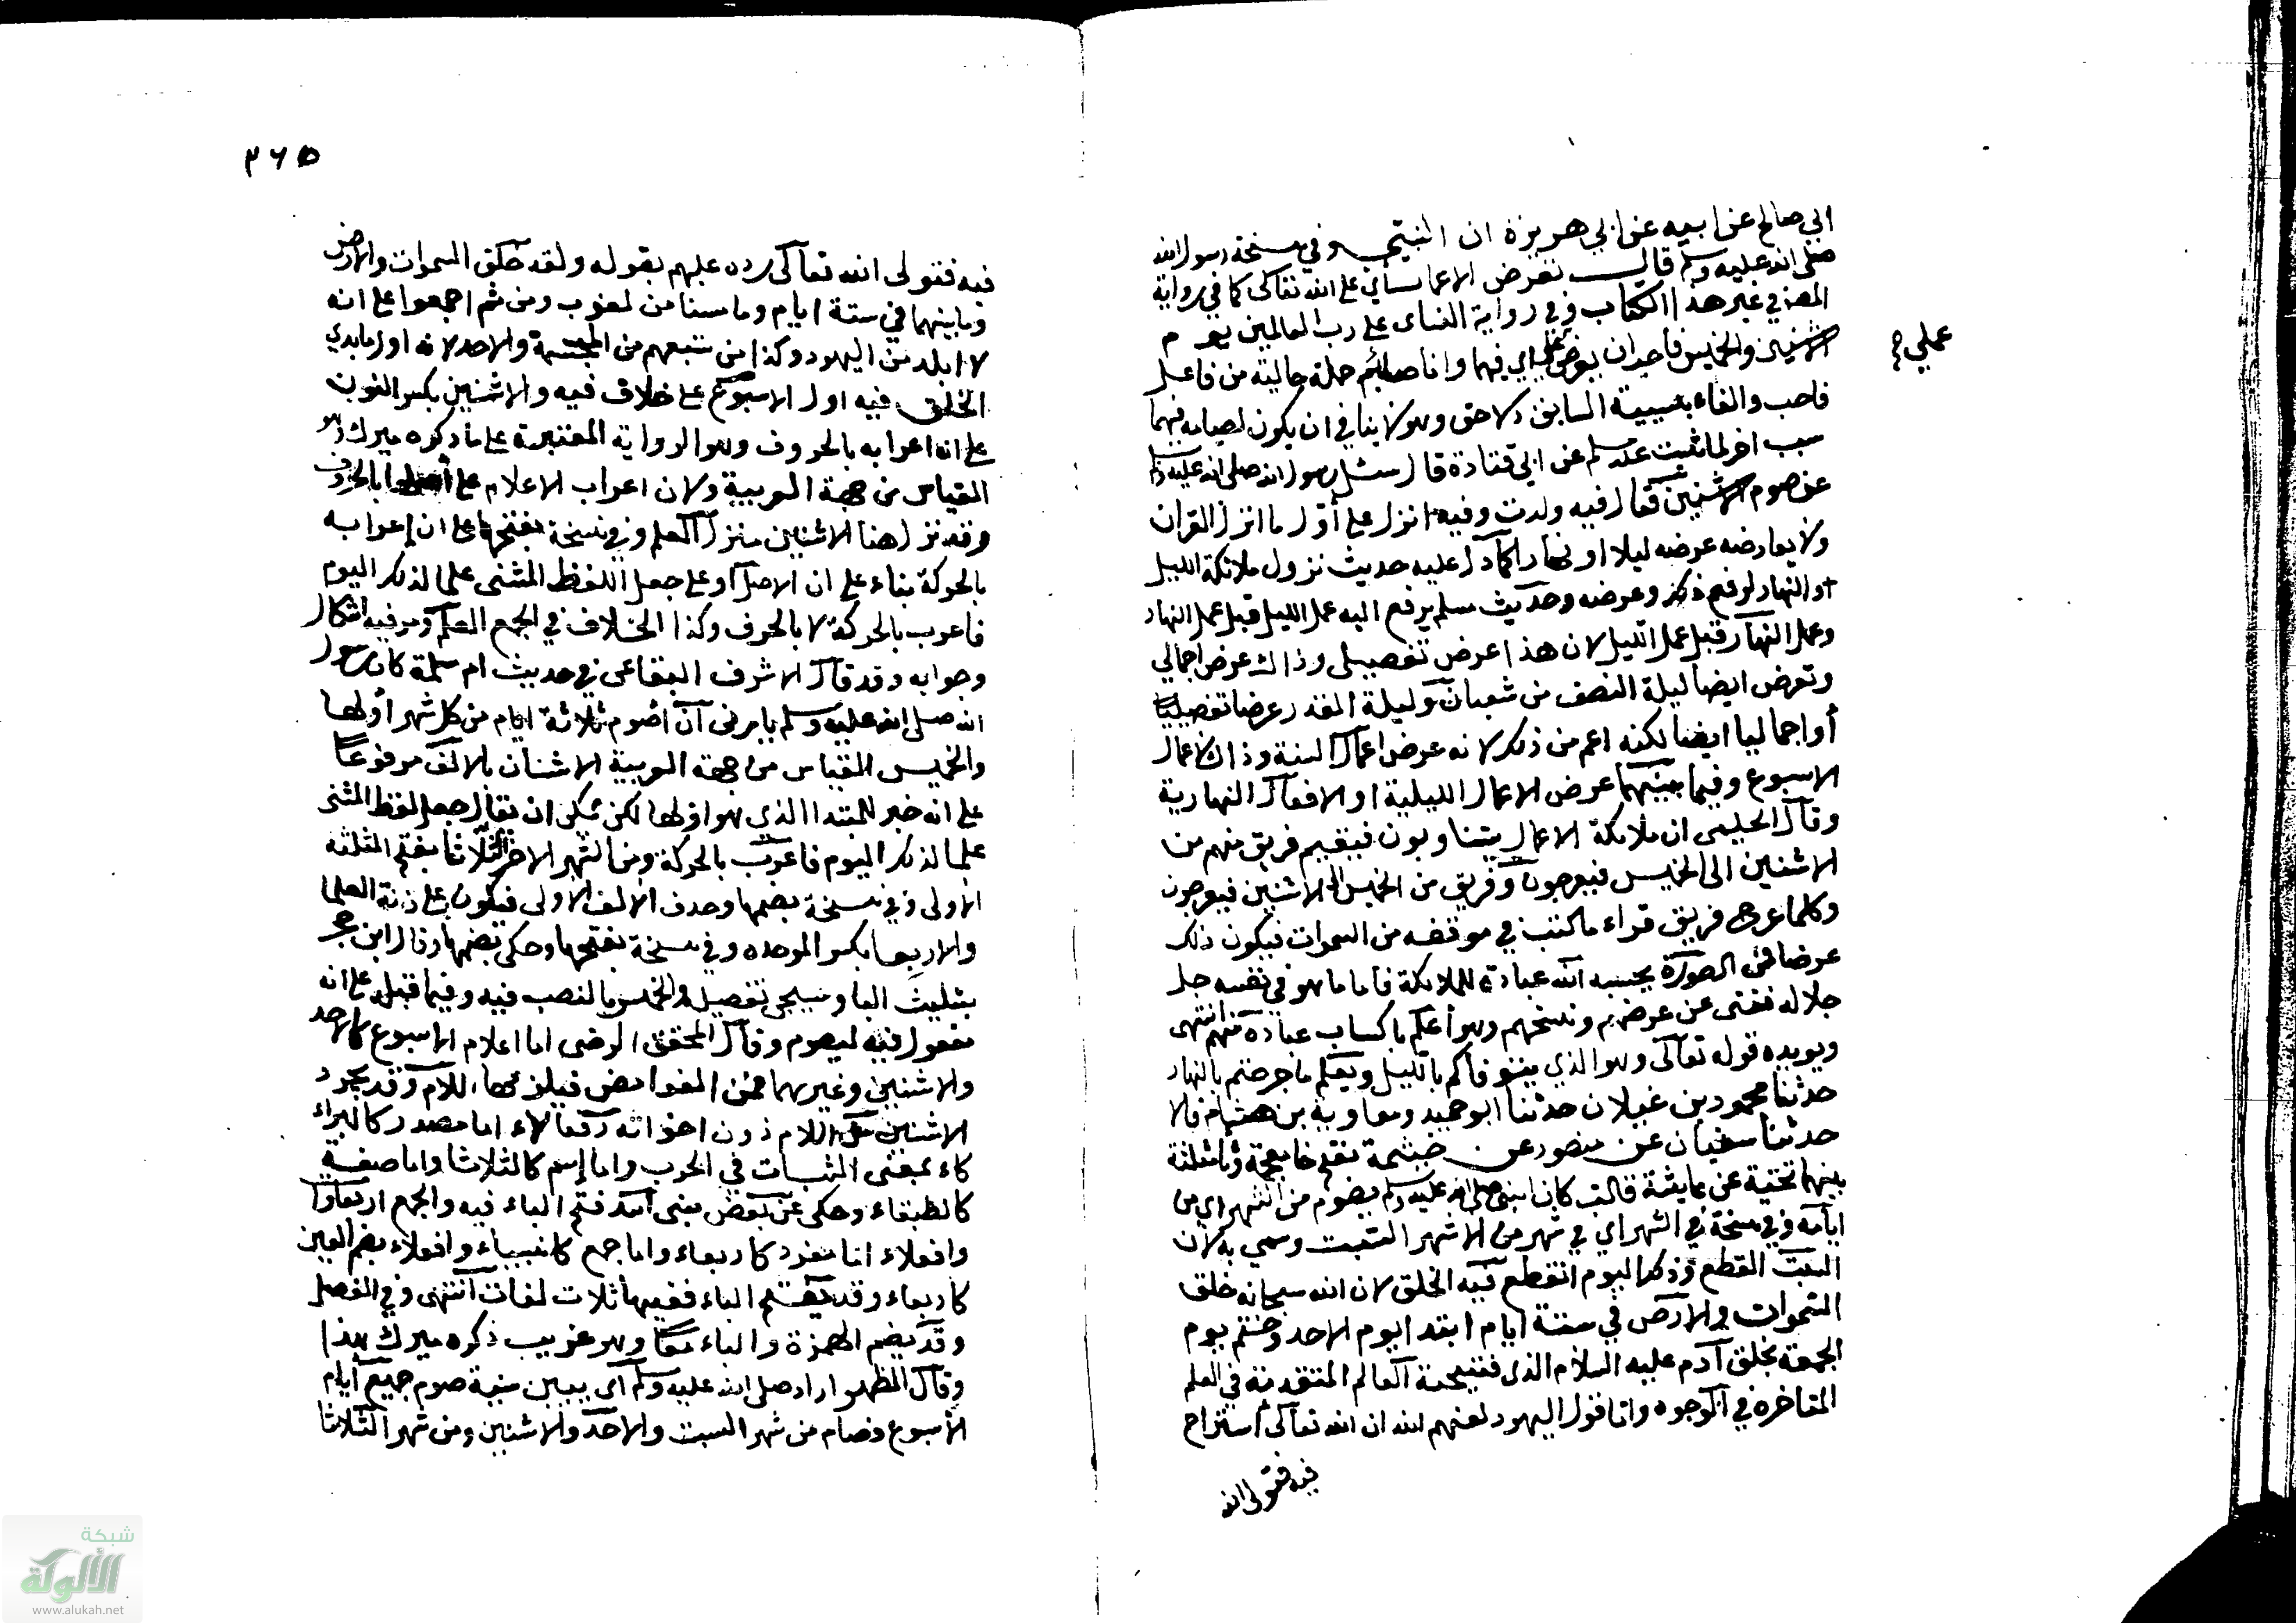 ابي صالح عن ابيه عن ابي هريرة ان النبي وفي نسخة رسول الله
صلى الله عليه وسلم قال تعرض الاعمال اي على الله تعالى كما في رواية
المص في غير هذا الكتاب وفي رواية النساي على رب العالمين يوم
الاثنين والخميس فاحب ان يعرض عملي اي فيهما وانا صائم جملة حالية من فاعل
عملي صح
فاحب والفاء لسببية السابق للاحق وهو لا ينافي ان يكون لصيامه فيهما
سبب اخر لما ثبت عند مسلم عن ابي قتادة قال سئل رسول الله صلى الله عليه وسلم
عن صوم الاثنين فقال فيه ولدت وفيه انزل علي أول ما انزل القران
ولا يعارضه عرضه ليلا او نهارا كما دل عليه حديث نزول ملائكة الليل
والنهار لرفع ذلك وعرضه وحديث مسلم يرفع اليه عمل الليل قبل عمل النهار
وعمل النهار قبل عمل الليل لان هذا عرض تفصيلي وذاك عرض اجمالي
وتعرض ايضا ليلة النصف من شعبان وليلة القدر عرضا تفصيليا
أو اجماليا ايضا لكنه اعم من ذلك لانه عرض اعمال السنة وذاك لاعمال
الاسبوع وفيما بينهما عرض الاعمال الليلية او الافعال النهارية
وقال الحليمي ان ملائكة الاعمال يتناوبون فيقيم فريق منهم من
الاثنين الى الخميس فيعرجون وفريق من الخميس الى الاثنين فيعرجون
وكلما عرج فريق قراء ما كتب في موقفه من السموات فيكون ذلك
عرضا في الصورة يحسبه الله عبادة للملائكة فاما ما هو في نفسه جل
جلاله فغني عن عرضهم ونسخهم وهو أعلم باكساب عباده منهم انتهى
ويويده قوله تعالى وهو الذي يتوفاكم بالليل ويعلم ما جرحتم بالنهار
حدثنا محمود بن غيلان حدثنا ابو احمد ومعاوية بن هشام قالا
حدثنا سفيان عن منصور عن خيثمة بفتح خا معجمة وثا مثلثة
بينهما تحتية عن عايشة قالت كان النبي صلى الله عليه وسلم يصوم من الشهر اي من
ايامه وفي نسخة في الشهر اي في شهر من الاشهر السبت وسمي به لان
السبت القطع وذلك اليوم انقطع فيه الخلق لان الله سبحانه خلق
السموات والارض في ستة ايام ابتدا يوم الاحد وختم يوم
الجمعة بخلق آدم عليه السلام الذي نتيجة العالم المتقدمة في العلم
المتاخرة في الوجود واما قول اليهود لعنهم الله ان الله تعالى استراح
فيه فتولى الله
٢٦٥
فيه فتولى الله تعالى رده عليهم بقوله ولقد خلق السموات والارض
وما بينهما في ستة ايام وما مسنا من لغوب ومن ثم اجمعوا على انه
لا ابلد من اليهود وكذا من تبعهم من المجسمة والاحد لانه اول ما بدي
الخلق فيه اول الاسبوع على خلاف فيه والاثنين بكسر النون
على ان اعرابه بالحروف وهو الرواية المعتبرة على ما ذكره ميرك وهو
القياس من جهة العربية ولان اعراب الاعلام على أصلها بالحروف
وقد نزل هنا الاثنين منزل العلم وفي نسخة بفتحها على ان اعرابه
بالحركة بناء على ان الاصل او على جعل اللفظ المثنى علما لذلك اليوم
فاعرب بالحركة لا بالحرف وكذا الخلاف في الجمع العلم ومر فيه اشكال
وجوابه وقد قال الاشرف البقاعي في حديث ام سلمة كان رسول
الله صلى الله عليه وسلم يامرني أن أصوم ثلاثة ايام من كل شهر أولها
والخميس القياس من جهة العربية الاثنان بالالف مرفوعا
على انه خبر للمبتدا الذي هو اولها لكن يمكن ان يقال جعل لفظ المثنى
علما لذلك اليوم فاعرب بالحركة ومن الشهر الاخر الثلاثا بفتح المثلثة
الأولى وفي نسخة بضمها وحذف الالف الاولى فيكون على زنة العلما
والاربعا بكسر الموحده وفي نسخة بفتحها وحكي بضمها وقال ابن حجر
بتثليث البا وسيجي تفصيله والخميس بالنصب فيه وفيما قبله على انه
مفعول فيه ليصوم وقال المحقق الرضي اما اعلام الاسبوع كالاحد
والاثنين وغيرهما فمن الغوامض فيلزمها اللام وقد يجرد
الاثنين من اللام دون اخواته وفعالاء اما مصدر كالبراء
كاء بمعنى الثبات في الحرب واما إسم كالثلاثا واما صفة
كالطباقاء وحكي عن بعض بني أسد فتح الباء فيه والجمع اربعاوا
وافعلاء اما مفرد كاربعاء واما جمع كانبياء وافعلاء بضم العين
كاربعاء وقد تفتح الباء ففيها ثلاث لغات انتهى وفي المفصل
وقد يضم الهمزة والباء معا وهو غريب ذكره ميرك هذا
وقال المظهر اراد صلى الله عليه وسلم أن يبين سنية صوم جميع أيام
الأسبوع فصام من شهر السبت والاحد والاثنين ومن شهر الثلاثا
شبكة
الألوكة
www.alukah.net